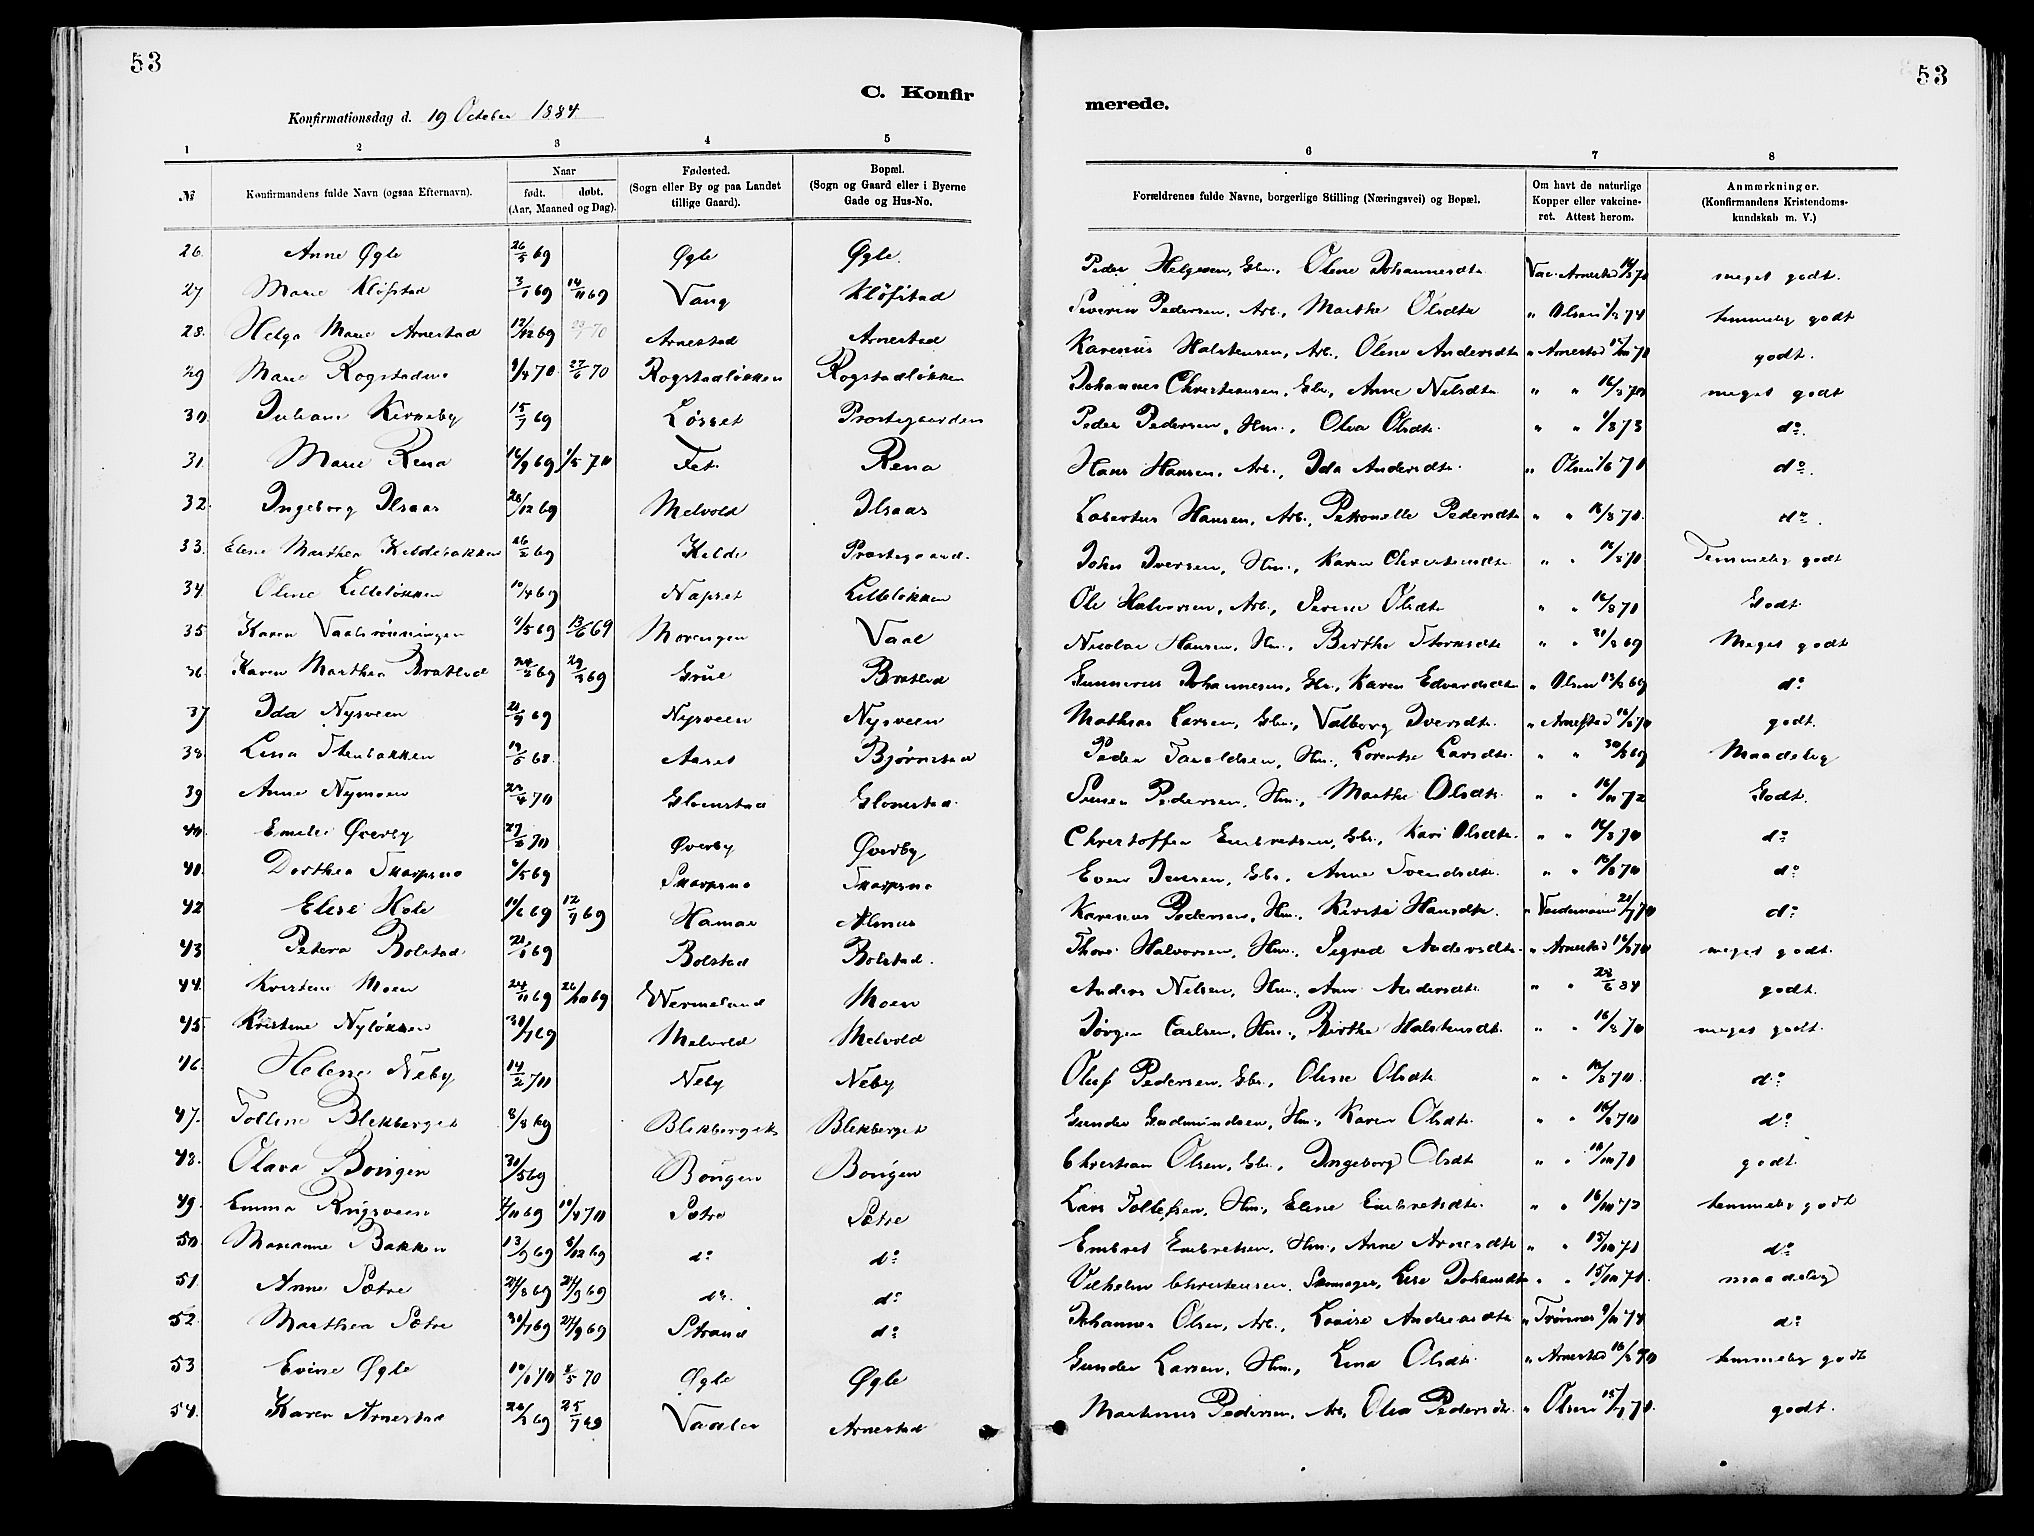 53
53
C. Konfir
merede.
Konfirmationsdag d. 19 October 1884
1 2 3 4 5 6 7 8
№ Konfirmandens fulde Navn (ogsaa Efternavn). Naar født. døbt. (Aar, Maaned og Dag). Fødested. (Sogn eller By og paa Landet tillige Gaard). Bopæl. (Sogn og Gaard eller i Byerne Gade og Hus-No. Forældrenes fulde Navne, borgerlige Stilling (Næringsvei) og Bopæl. Om havt de naturlige Kopper eller vakcineret. Attest herom. Anmærkninger. (Konfirmandens Kristendomskundskab m. V.)
26. Anne Øgle 69 Øgle Øgle. Peder Helgesen, Gbr., Olene Johannesdtr Vac. Arnestad 70 meget godt.
27 Marie Kløfstad 3/1 69 14/11 69 Vang Kløfstad Severin Pedersen, Arb., Marthe Olsdtr " Olsen 74 temmelig godt
28. Helga Marie Arnestad 12/12 69 70 Arnestad Arnestad Karenus Halstensen, Arb., Olene Andersdtr " Arnestad 70 godt.
29 Marie Rogstadmo 70 27/6 70 Rogstadløkken Rogstadløkken Johannes Christiansen, Gbr., Anne Nilsdtr " " 16/8 70 meget godt
30 Juliane Kirkeby 15/7 69 Løsset Prestegaarden Peder Pedersen, Hm., Olea Olsdtr. " " 73 do.
31. Marie Rena 16/9 69 1/5 70 Fet. Rena Hans Hansen, Arb., Ida Andersdtr. " Olsen 1/6 70 do.
32. Ingeborg Ilsaas 28/12 69 Melvold Ilsaas Lobertus Hansen, Arb., Petronelle Pedersdtr " " 16/8 70. do.
33. Elene Marthea Kildebakken 69 Kilde Prestegaard. John Iversen, Hm., Karen Christensdtr " " 16/8 70. Temmelig godt
34 Oline Lilleløkken 10/4 69 Næsset Lilleløkken Ole Halvorsen, Arb., Serine Olsdtr " " 16/8 70 Godt
35. Karen Vaalsrønningen 69 13/6 69 Morengen Vaal Nicolai Hansen, Hm., Birthe Thorsdtr " " 69 Meget godt
36. Karen Marthea Bratlid 69 69 Grue Bratlid Gunnerus Johannesen, Gbr., Karen Edvardsdtr " Olsen 69 do
37 Ida Nysveen 69 Nysveen Nysveen Mathias Larsen, Gbr., Valborg Iversdtr. " Arnestad 16/8 70 godt.
38. Lina Stenbakken 68. Aaset Bjørnstad Peder Taraldsen, Hm., Lorentse Larsdtr. " " 69 Maadelig
39 Anne Nymoen 70 Glomstad Glomstad. Simen Pedersen, Hm., Marthe Olsdtr. " " 72 Godt.
40. Emilie Øverby 70 Øverby Øverby Christoffer Embretsen, Gbr., Kari Olsdtr. " " 16/8 70 do
41. Dorthea Skarpsno 69 Skarpsno Skarpsno Even Jensen, Gbr., Anne Svendsdtr. " " 16/8 70 do
42 Elise Hole 69 12/9 69 Hamar Alme Karenus Pedersen, Hm., Kirsti Hansdtr. " 70 do
43 Petera Bolstad 69 Bolstad Bolstad. Thore Halvorsen, Hm., Sigrid Andersdtr. " Arnestad 16/8 70 meget godt.
44. Kristine Moen 24/11 69 69 Wermeland Moen Anders Nilsen, Hm., Anne Andersdtr. " " 28/6 84 godt.
45. Kristine Nyløkken 69 Melvold Melvold Jørgen Carlsen, Hm., Birthe Halstensdtr. " " 16/8 70 meget godt.
46. Helene Neby 14/2 70 Neby Neby Oluf Pedersen, Gbr., Oline Olsdtr. " " 16/8 70. do
47. Tolline Blekberget 8/8 69 Blekberget Blekberget Gunder Gudmundsen, Hm., Karen Olsdtr. " " 16/8 70 do
48. Olava Borigen 30/5 69 Borigen Borigen Christian Olsen, Gbr., Ingeborg Olsdtr. " " 70 godt.
49. Emma Rugsveen 69 70 Sætre Sætre Lars Tollefsen, Hm., Eline Embretsdtr. " " 72 temmelig godt
50. Marianne Bakken 13/9 69 8/12 69 do do Embret Embretsen, Hm., Anne Arnesdtr " " 15/10 71 do
51. Anne Sætre 24/8 69 24/9 69 do. do Vilhelm Christensen, Skomager, Lise Johansdtr " " 15/10 71. maadelig
52. Marthea Sætre 69 24/9 69 Strand do Johannes Olsen, Arb., Lovise Andreasdtr " 74 do
53 Evine Øgle 70 8/5 70 Øgle Øgle Gunder Larsen, Hm., Lina Olsdtr. " Arnestad 16/8 70 temmelig godt
54. Karen Arnestad 69 25/7 69 Vaaler Arnestad Martinus Pedersen, Arb., Olea Pedersdtr. " Olsen 70. godt.